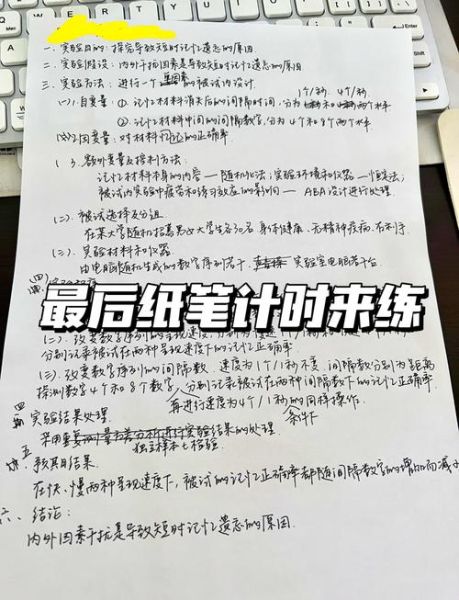 W E R T Y U
一、实验目的：探究导致短时记忆遗忘的原因.
二、实验假设：内外干扰因素是导致短时记忆遗忘的原因
三、实验方法：进行一个 单因素 的被试内设计.
1个/秒、4个/秒.
(一)自变量：① 记忆材料消失后的间隔时间，分为 两个水平
② 记忆材料中间的间隔数字，分为4个和8个两个水平
(二)因变量：对材料记忆的正确率.
(3.额外变量及控制方法：
记忆材料本身的内容 — 随机化法；实验环境和仪器 — 恒定法；
被试内实验中疲劳和练习效应的影响 — ABA设计进行处理.
(二).被试选择及分组.
在某大学随机招募男女大学生各30名，身体健康，无精神疾病，右利手.
(三).实验材料和仪器.
由电脑随机生成的数字序列若干，实验室电脑若干台.
(四)
最后纸笔计时来练
分别记录被试在两种呈现速度下的记忆正确率.
(三).改变数字序列的间隔数，速度为1个/1秒不变，间隔数分别为距离
探测数字4个和8个数字，分别记录被试在两种间隔数下的记忆正确率.
再进行速度为4个/1秒的同样操作.
四 实验结果处理. 条件下
采用重复测量方差分析进行实验结果的处理.
独立样本t检验.
五
预期结果
在快、慢两种呈现速度下，被试的记忆正确率都随间隔数字的增加而减少
六、结论：
内外因素干扰是导致短时记忆遗忘的原因.